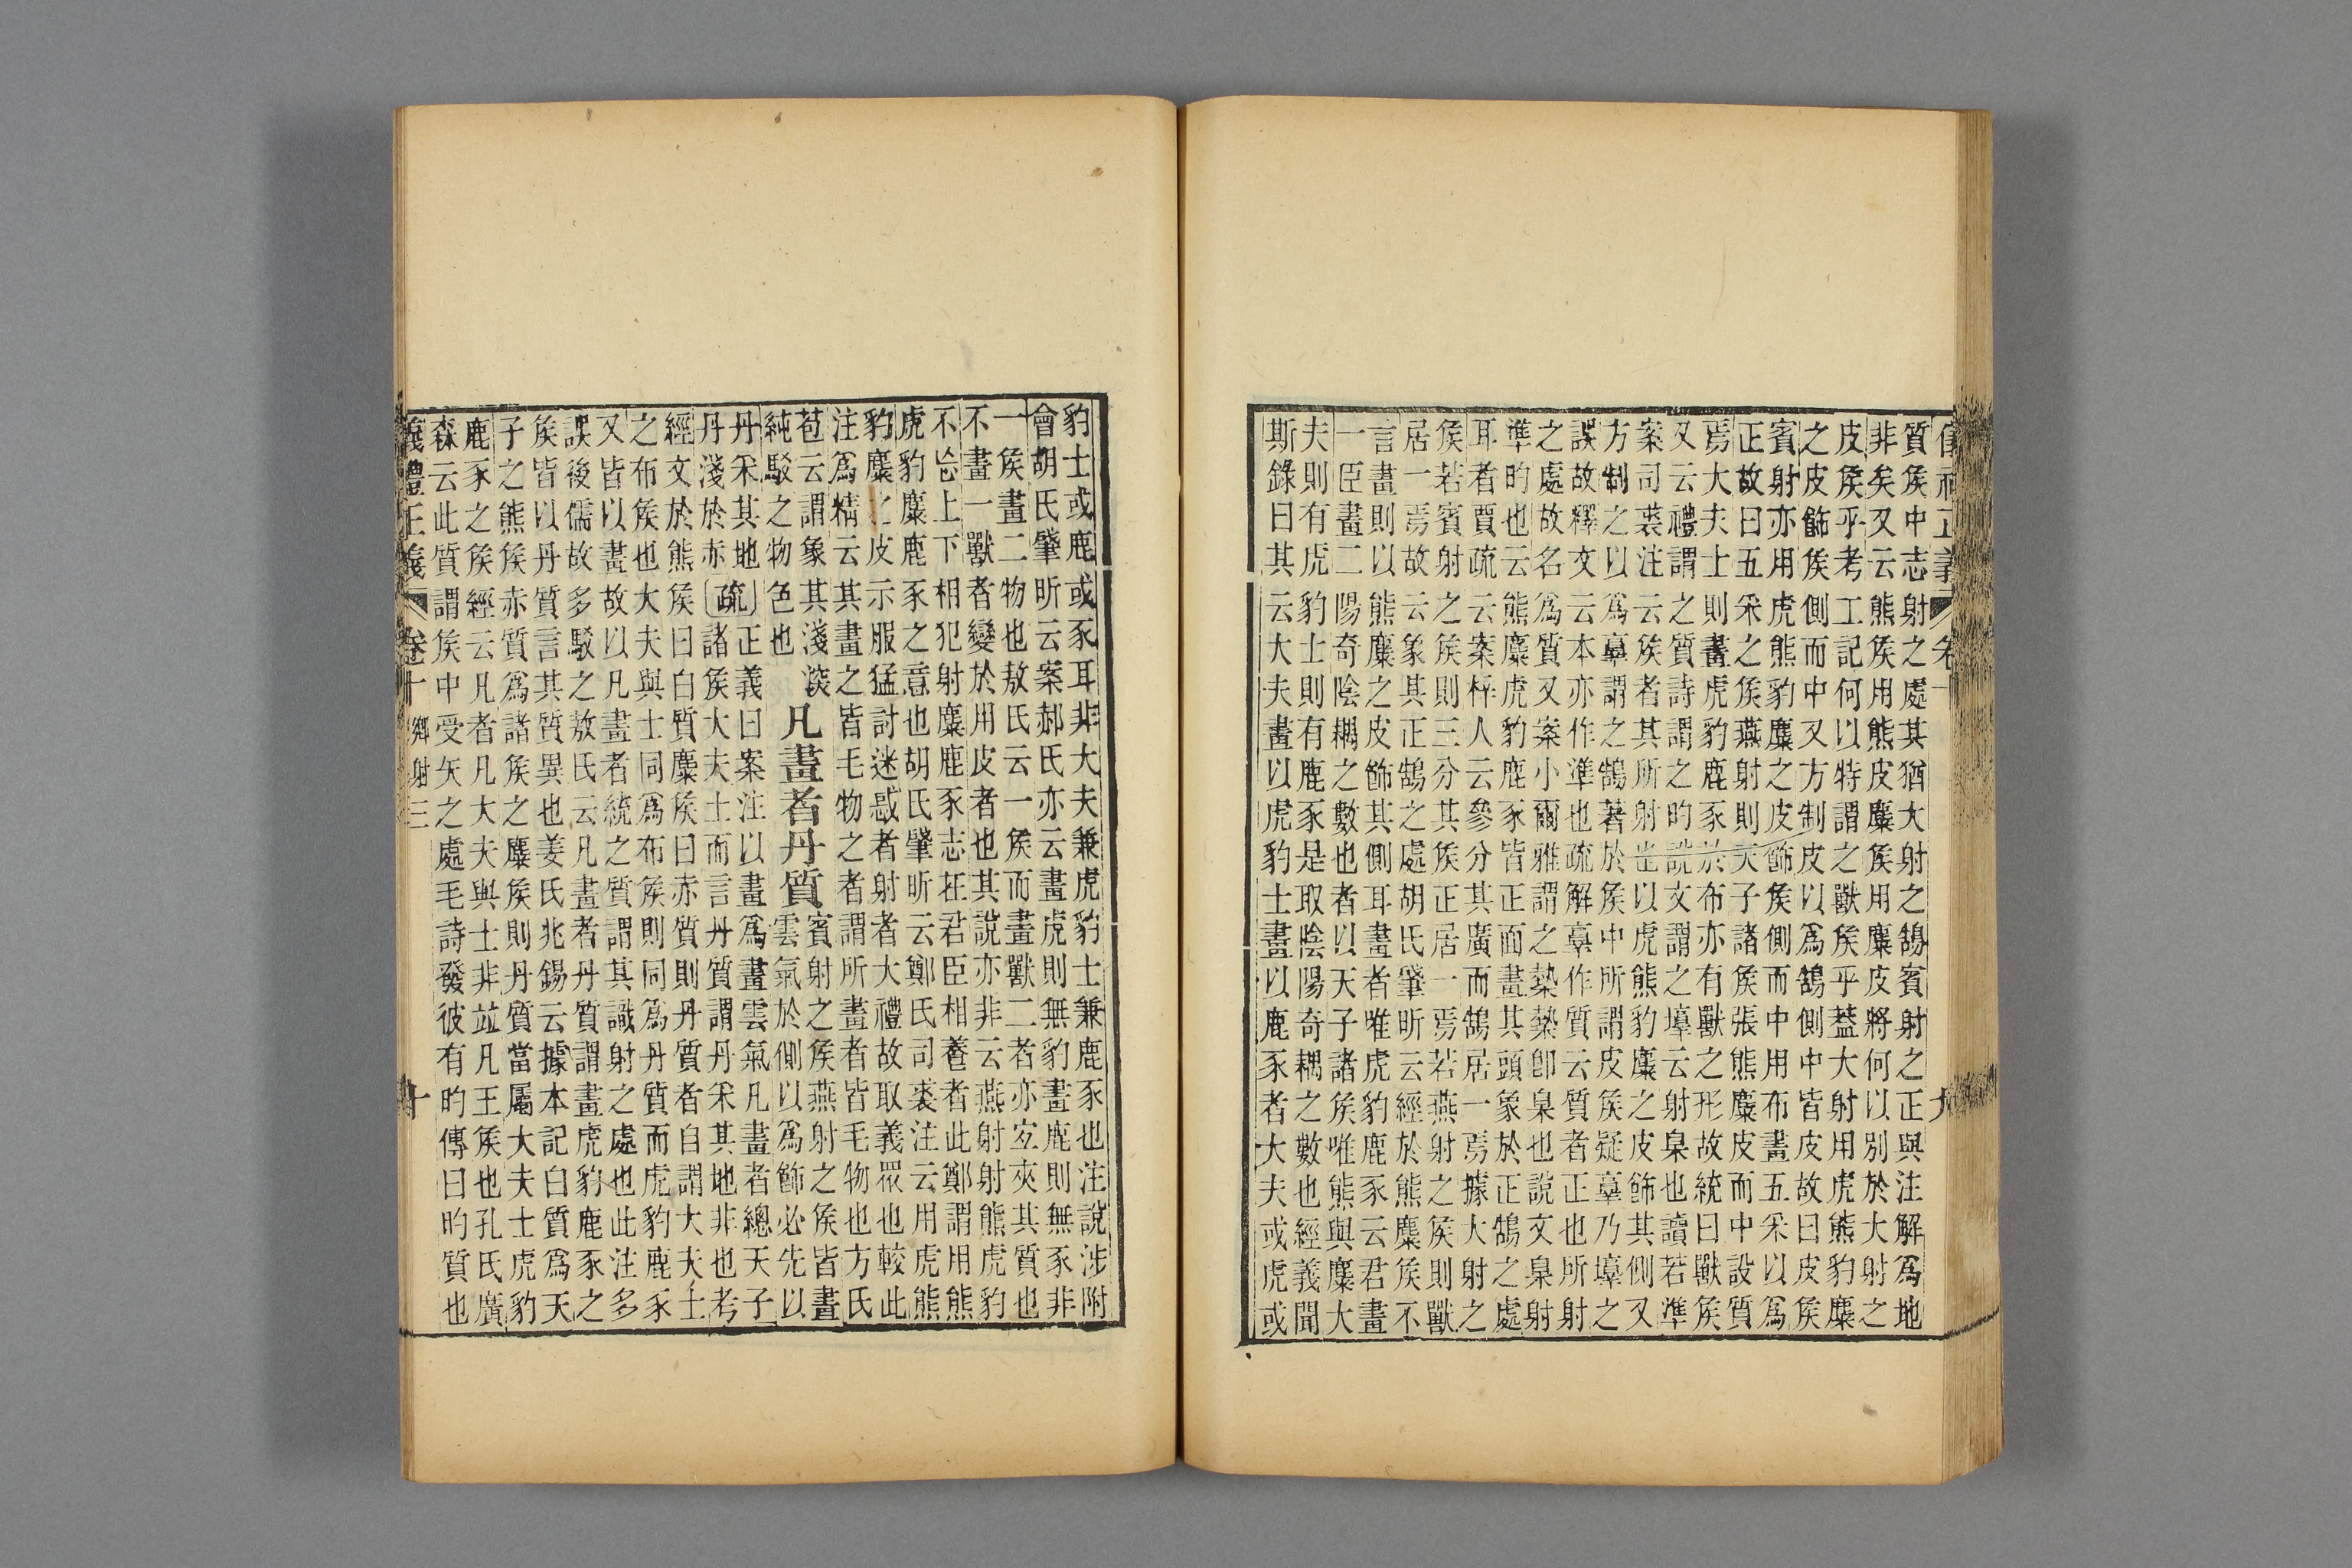 質矦中志射之處其猶大射之鵠賓射之正與注解爲地
非矣又云熊矦用熊皮麋矦用麋皮將何以別於大射之
皮矦乎考工記何以特謂之獸矦乎葢大射用虎熊豹麋
之皮飾矦側而中又方制皮以爲鵠側中皆皮故曰皮矦
賓射亦用虎熊豹麋之皮飾矦側而中用布畫五采以爲
正故曰五采之矦燕射則天子諸矦張熊麋皮而中設質
焉大夫士則畫虎豹鹿豕於布亦有獸之形故統曰獸矦
又云禮謂之質詩謂之旳說文謂之墇云射臬也讀若準
案司裘注云矦者其所射也以虎熊豹麋之皮飾其側又
方制之以爲𦎫謂之鵠著於矦中所謂皮矦疑𦎫乃墇之
誤故釋文云本亦作準也疏解𦎫作質云質者正也所射
之處故名爲質又案小爾雅謂之槷槷卽臬也說文臬射
準旳也云熊麋虎豹鹿豕皆正面畫其頭象於正鵠之處
耳者賈疏云案梓人云參分其廣而鵠居一焉據大射之
矦若賓射之矦則三分其矦正居一焉若燕射之矦則獸
居一焉故云象其正鵠之處胡氏肇昕云經於熊麋矦不
言畫則以熊麋之皮飾其側耳畫者唯虎豹鹿豕云君畫
一臣畫二陽奇陰耦之數也者以天子諸矦唯熊與麋大
夫則有虎豹士則有鹿豕是取陰陽奇耦之數也經義聞
斯錄曰其云大夫畫以虎豹士畫以鹿豕者大夫或虎或
儀禮正義 卷十 九
豹士或鹿或豕耳非大夫兼虎豹士兼鹿豕也注說涉附
會胡氏肇昕云案郝氏亦云畫虎則無豹畫鹿則無豕非
一矦畫二物也敖氏云一矦而畫獸二者亦宜夾其質也
不畫一獸者變於用皮者也其說亦非云燕射射熊虎豹
不忘上下相犯射麋鹿豕志在君臣相養者此鄭謂用熊
虎豹麋鹿豕之意也胡氏肇昕云鄭氏司裘注云用虎熊
豹麋之皮示服猛討迷惑者射者大禮故取義眾也較此
注爲精云其畫之皆毛物之者謂所畫者皆毛物也方氏
苞云謂象其淺淡
純駁之物色也
凡畫者丹質
賓射之矦燕射之矦皆畫
雲氣於側以爲飾必先以
丹采其地
丹淺於赤
〔疏〕
正義曰案注以畫爲畫雲氣凡畫者總天子
諸矦大夫士而言丹質謂丹采其地非也考
經文於熊矦曰白質麋矦曰赤質則丹質者自謂大夫士
之布矦也大夫與士同爲布矦則同爲丹質而虎豹鹿豕
又皆以畫故以凡畫者統之質謂其識射之處也此注多
誤後儒故多駁之敖氏云凡畫者丹質謂畫虎豹鹿豕之
矦皆以丹質言其質異也姜氏兆錫云據本記白質爲天
子之熊矦赤質爲諸矦之麋矦則丹質當屬大夫士虎豹
鹿豕之矦經云凡者凡大夫與士非竝凡王矦也孔氏廣
森云此質謂矦中受矢之處毛詩發彼有旳傳曰旳質也
儀禮正義 卷十 鄉射三 十